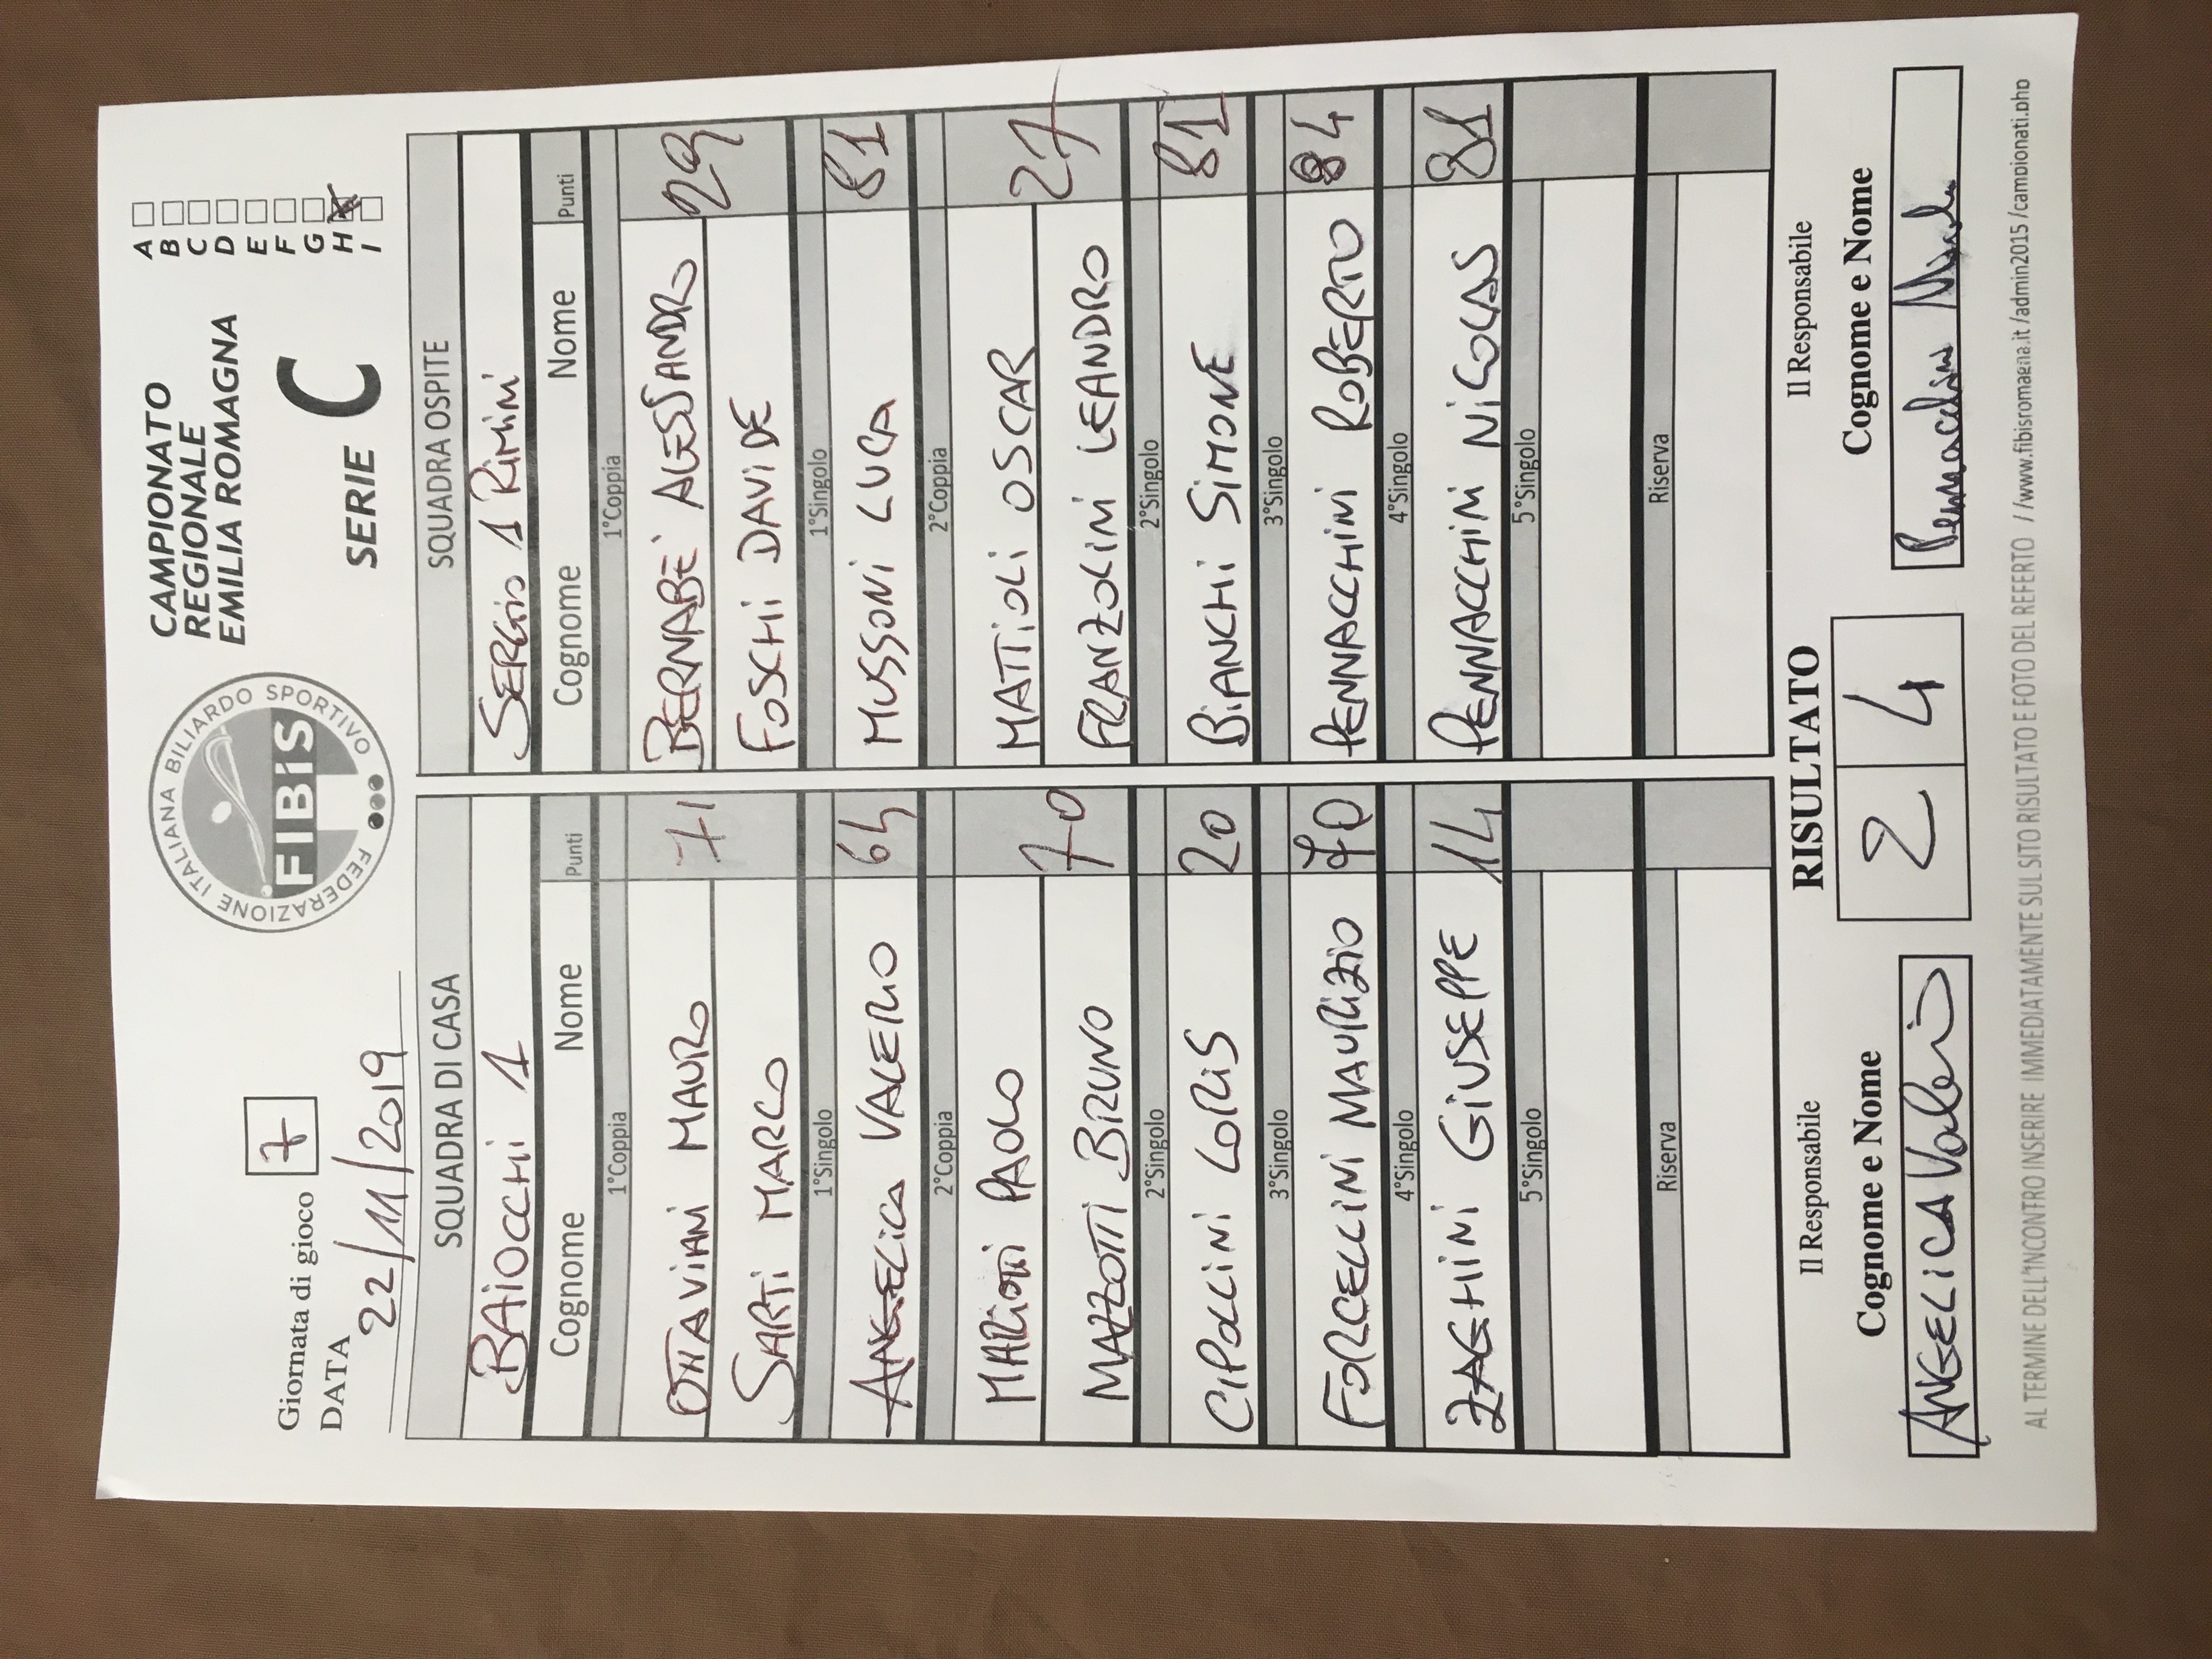 Giornata di gioco 7
DATA 22/11/2019
FEDERAZIONE ITALIANA BILIARDO SPORTIVO
FIBiS
CAMPIONATO
REGIONALE
EMILIA ROMAGNA
SERIE C
A
B
C
D
E
F
G
H X
I
SQUADRA DI CASA SQUADRA OSPITE
BAiOCCHi 1 SERGio 1 Rimini
Cognome Nome Punti Cognome Nome Punti
1°Coppia 1°Coppia
OTTAViANi MAURO 71 BERNABE' ALESSANDRO 29
SARTi MARCO FOSCHi DAViDE
1°Singolo 1°Singolo
ANGELiCA VALERIO 64 MUSSONi LUCA 81
2°Coppia 2°Coppia
MARiOTTi PAOLO 70 MATTiOLi OSCAR 27
MAZZOTTi BRUNO FRANZOLiNi LEANDRO
2°Singolo 2°Singolo
CiPOLLiNi LORiS 20 BiANCHi SiMONE 81
3°Singolo 3°Singolo
FORCELLiNi MAURiZiO 70 PENNACCHiNi ROBERTO 84
4°Singolo 4°Singolo
ZAGHiNi GiUSEPPE 14 PENNACCHiNi NiCOLAS 81
5°Singolo 5°Singolo
Riserva Riserva
Il Responsabile RISULTATO Il Responsabile
Cognome e Nome 2 4 Cognome e Nome
ANGELiCA Valerio Pennacchini
AL TERMINE DELL'INCONTRO INSERIRE IMMEDIATAMENTE SUL SITO RISULTATO E FOTO DEL REFERTO //www.fibisromagna.it /admin2015 /campionati.php